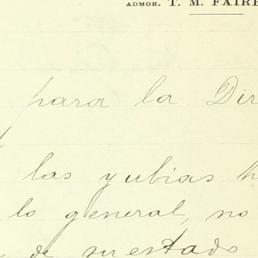 ADMOR. T. M. FAIRB
para la Dir
las yubias h
lo general, no
de su estado